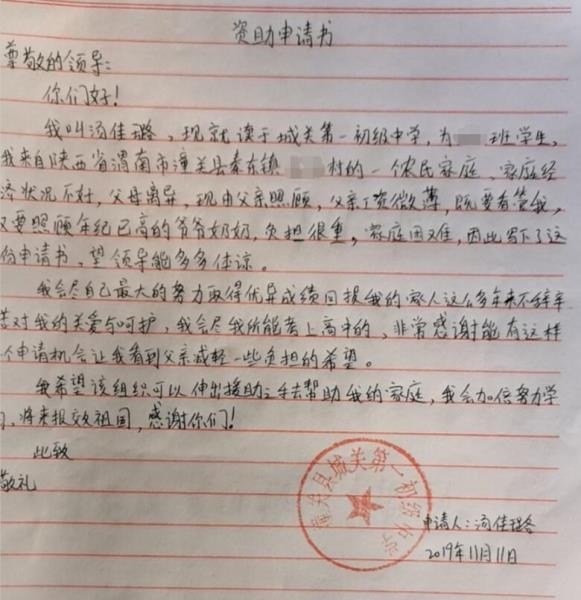 资助申请书
尊敬的领导:
你们好!
我叫汤佳璐,现就读于城关第一初级中学,为 班学生,
我来自陕西省渭南市潼关县秦东镇 村的一个农民家庭,家庭经
济状况不好,父母离异,现由父亲照顾,父亲工资微薄,既要看管我,
又要照顾年纪已高的爷爷奶奶,负担很重,家庭困难,因此写下了这
份申请书,望领导能多多体谅。
我会尽自己最大的努力取得优异成绩回报我的家人这么多年来不辞辛
苦对我的关爱与呵护,我会尽我所能考上高中的,非常感谢能有这样
个申请机会让我看到父亲减轻一些负担的希望。
我希望该组织可以伸出援助之手去帮助我的家庭,我会加倍努力学
习,将来报效祖国,感谢你们!
此致
敬礼
潼关县城关第一初级中学
申请人:汤佳璐
2019年11月11日